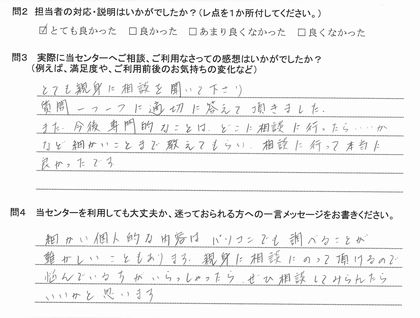 問2 担当者の対応・説明はいかがでしたか？（レ点を１か所付してください。）
☑とても良かった □良かった □あまり良くなかった □良くなかった
問3 実際に当センターへご相談、ご利用なさっての感想はいかがでしたか？
（例えば、満足度や、ご利用前後のお気持ちの変化など）
とても親身に相談を聞いて下さり
質問一つ一つに適切に答えて頂きました。
また、今後専門的なことは、どこに相談に行ったら……か
など細かいことまで教えてもらい、相談に行って本当に
良かったです
問4 当センターを利用しても大丈夫か、迷っておられる方への一言メッセージをお書きください。
細かい個人的な内容はパソコンでも調べることが
難かしいこともあります。親身に相談にのって頂けるので
悩んでいる方がいらっしゃったら、ぜひ相談してみらんたら
いいかと思います